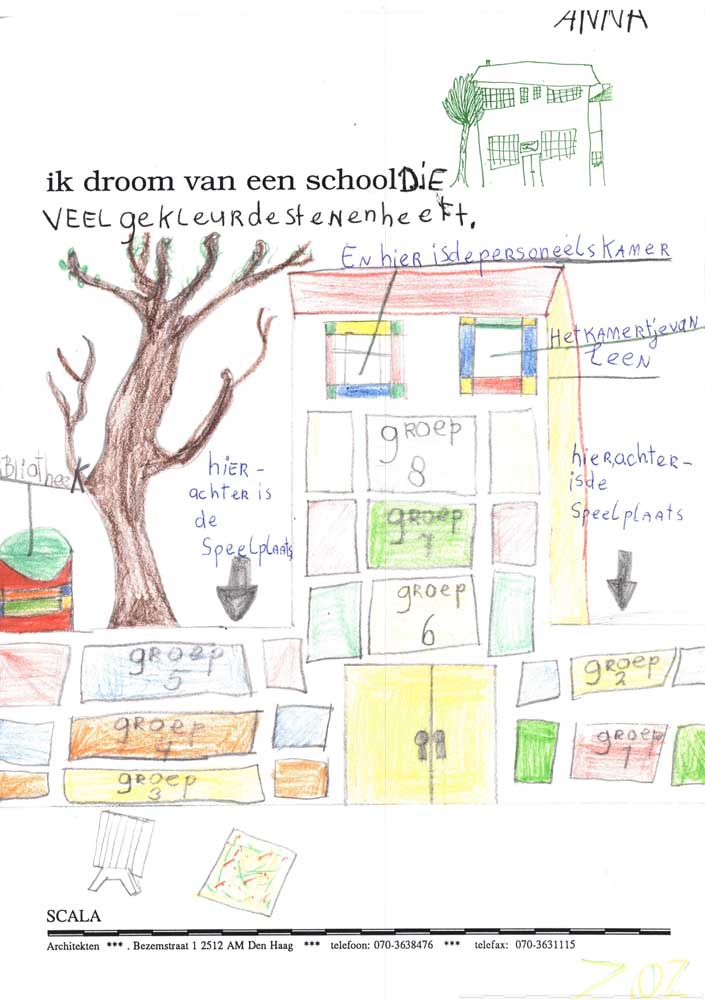 ANNA
ik droom van een school DiE
VEEL gekleurde stenen heeft.
En hier is de personeels kamer
Het kamertje van
leen
groep
8
Bliotheek
hier-
achter is
de
Speelplaats
hier,achter-
is de
Speelplaats
groep
7
groep
6
groep
5
groep
2
groep
4
groep
1
groep
3
SCALA
Architekten *** . Bezemstraat 1 2512 AM Den Haag *** telefoon: 070-3638476 *** telefax: 070-3631115